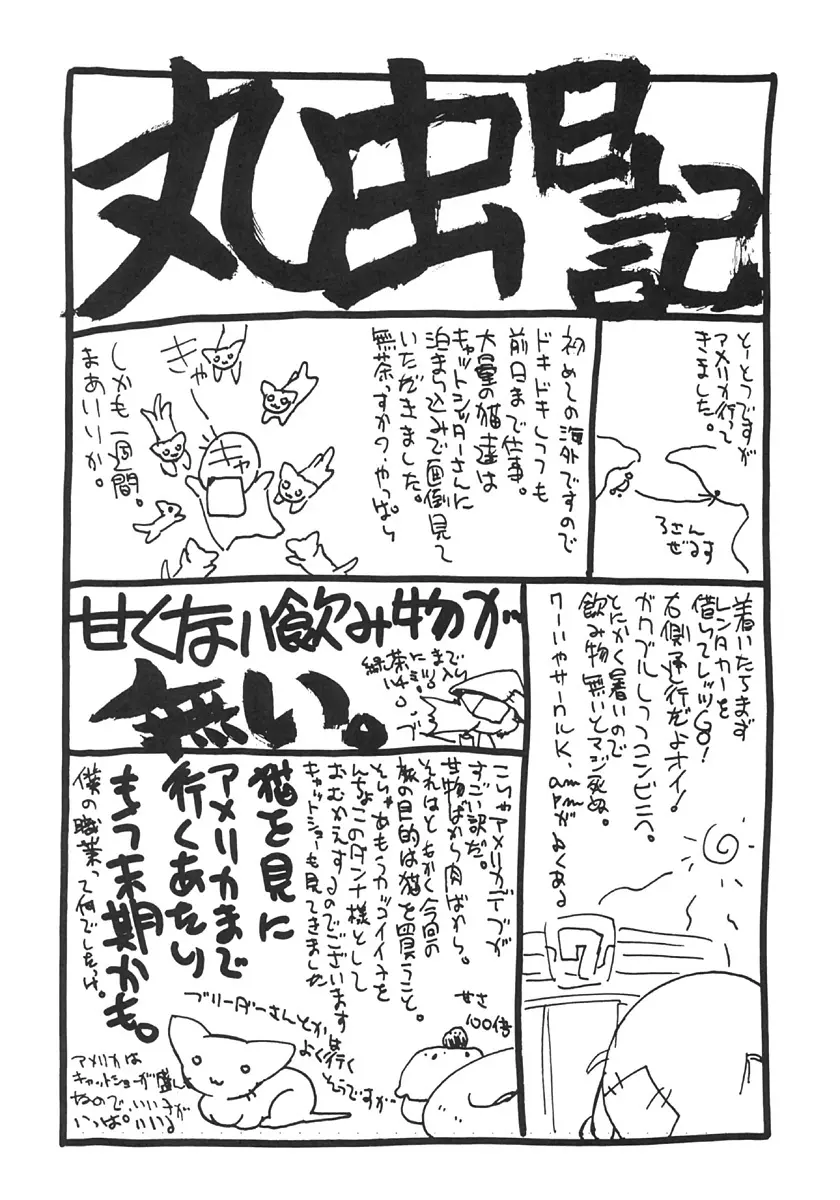 丸虫日記
とーとつですが
アメリカ行って
きました。
ろさん
ぜるす
初めての海外ですので
ドキドキしつつも
前日まで仕事。
大量の猫達は
キャットシッターさんに
泊まり込みで面倒見て
いただきました。
無茶っすかね、やっぱり
きゃー
キャ
しかも一週間。
まあいいか。
着いたらまず
レンタカーを
借りてレッツGO!
右側通行だよオイ!
ガクブルしつつコンビニへ。
とにかく暑いので
飲み物無いとマジ死ぬ。
ワーいやサークルK、ampmがよくある
7
甘くない飲み物が
無い。
緑茶にまで
ハチミツ入り
こりゃアメリカデブが
すごい訳だ。
甘物ばっかり肉ばっかり。
それはともかく今回の
旅の目的は猫を買うこと。
そりゃあもうカッコイイ子を
んちょこのダンナ様として
おむかえするのでございます
キャットショーも見てきました
甘さ
100倍
猫を見に
アメリカまで
行くあたり
もう末期かも。
僕の職業って何でしたっけ。
ブリーダーさんとかは
よく行く
そうですが
アメリカは
キャットショーが盛ん
なので、いい子が
いっぱいいる